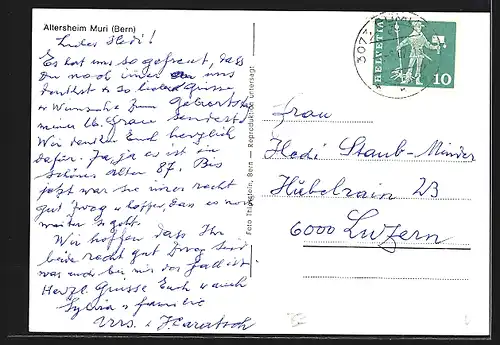 Altersheim Muri (Bern)
Liebes Hedi!
Es hat uns so gefreut, dass
Du noch immer an uns
denkst & so liebe Grüsse
& Wünsche zum Geburtstag
meiner lb. Frau sendest.
Wir danken Euch herzlich
dafür. Ja, ja es ist ein
schönes Alter 87. Bis
jetzt war sie immer recht
gut zwäg & hoffen, dass es noch
weiter so geht.
Wir hoffen dass Ihr
beide recht gut zwäg seid
was auch bei mir der Fall ist.
Herzl. Grüsse Euch & auch
Sylvia & Familie
Foto Trachsel, Bern — Reproduktion untersagt
3073
HELVETIA
10
Frau
Hedi Staub-Minder
Hübelirain 23
6000 Luzern